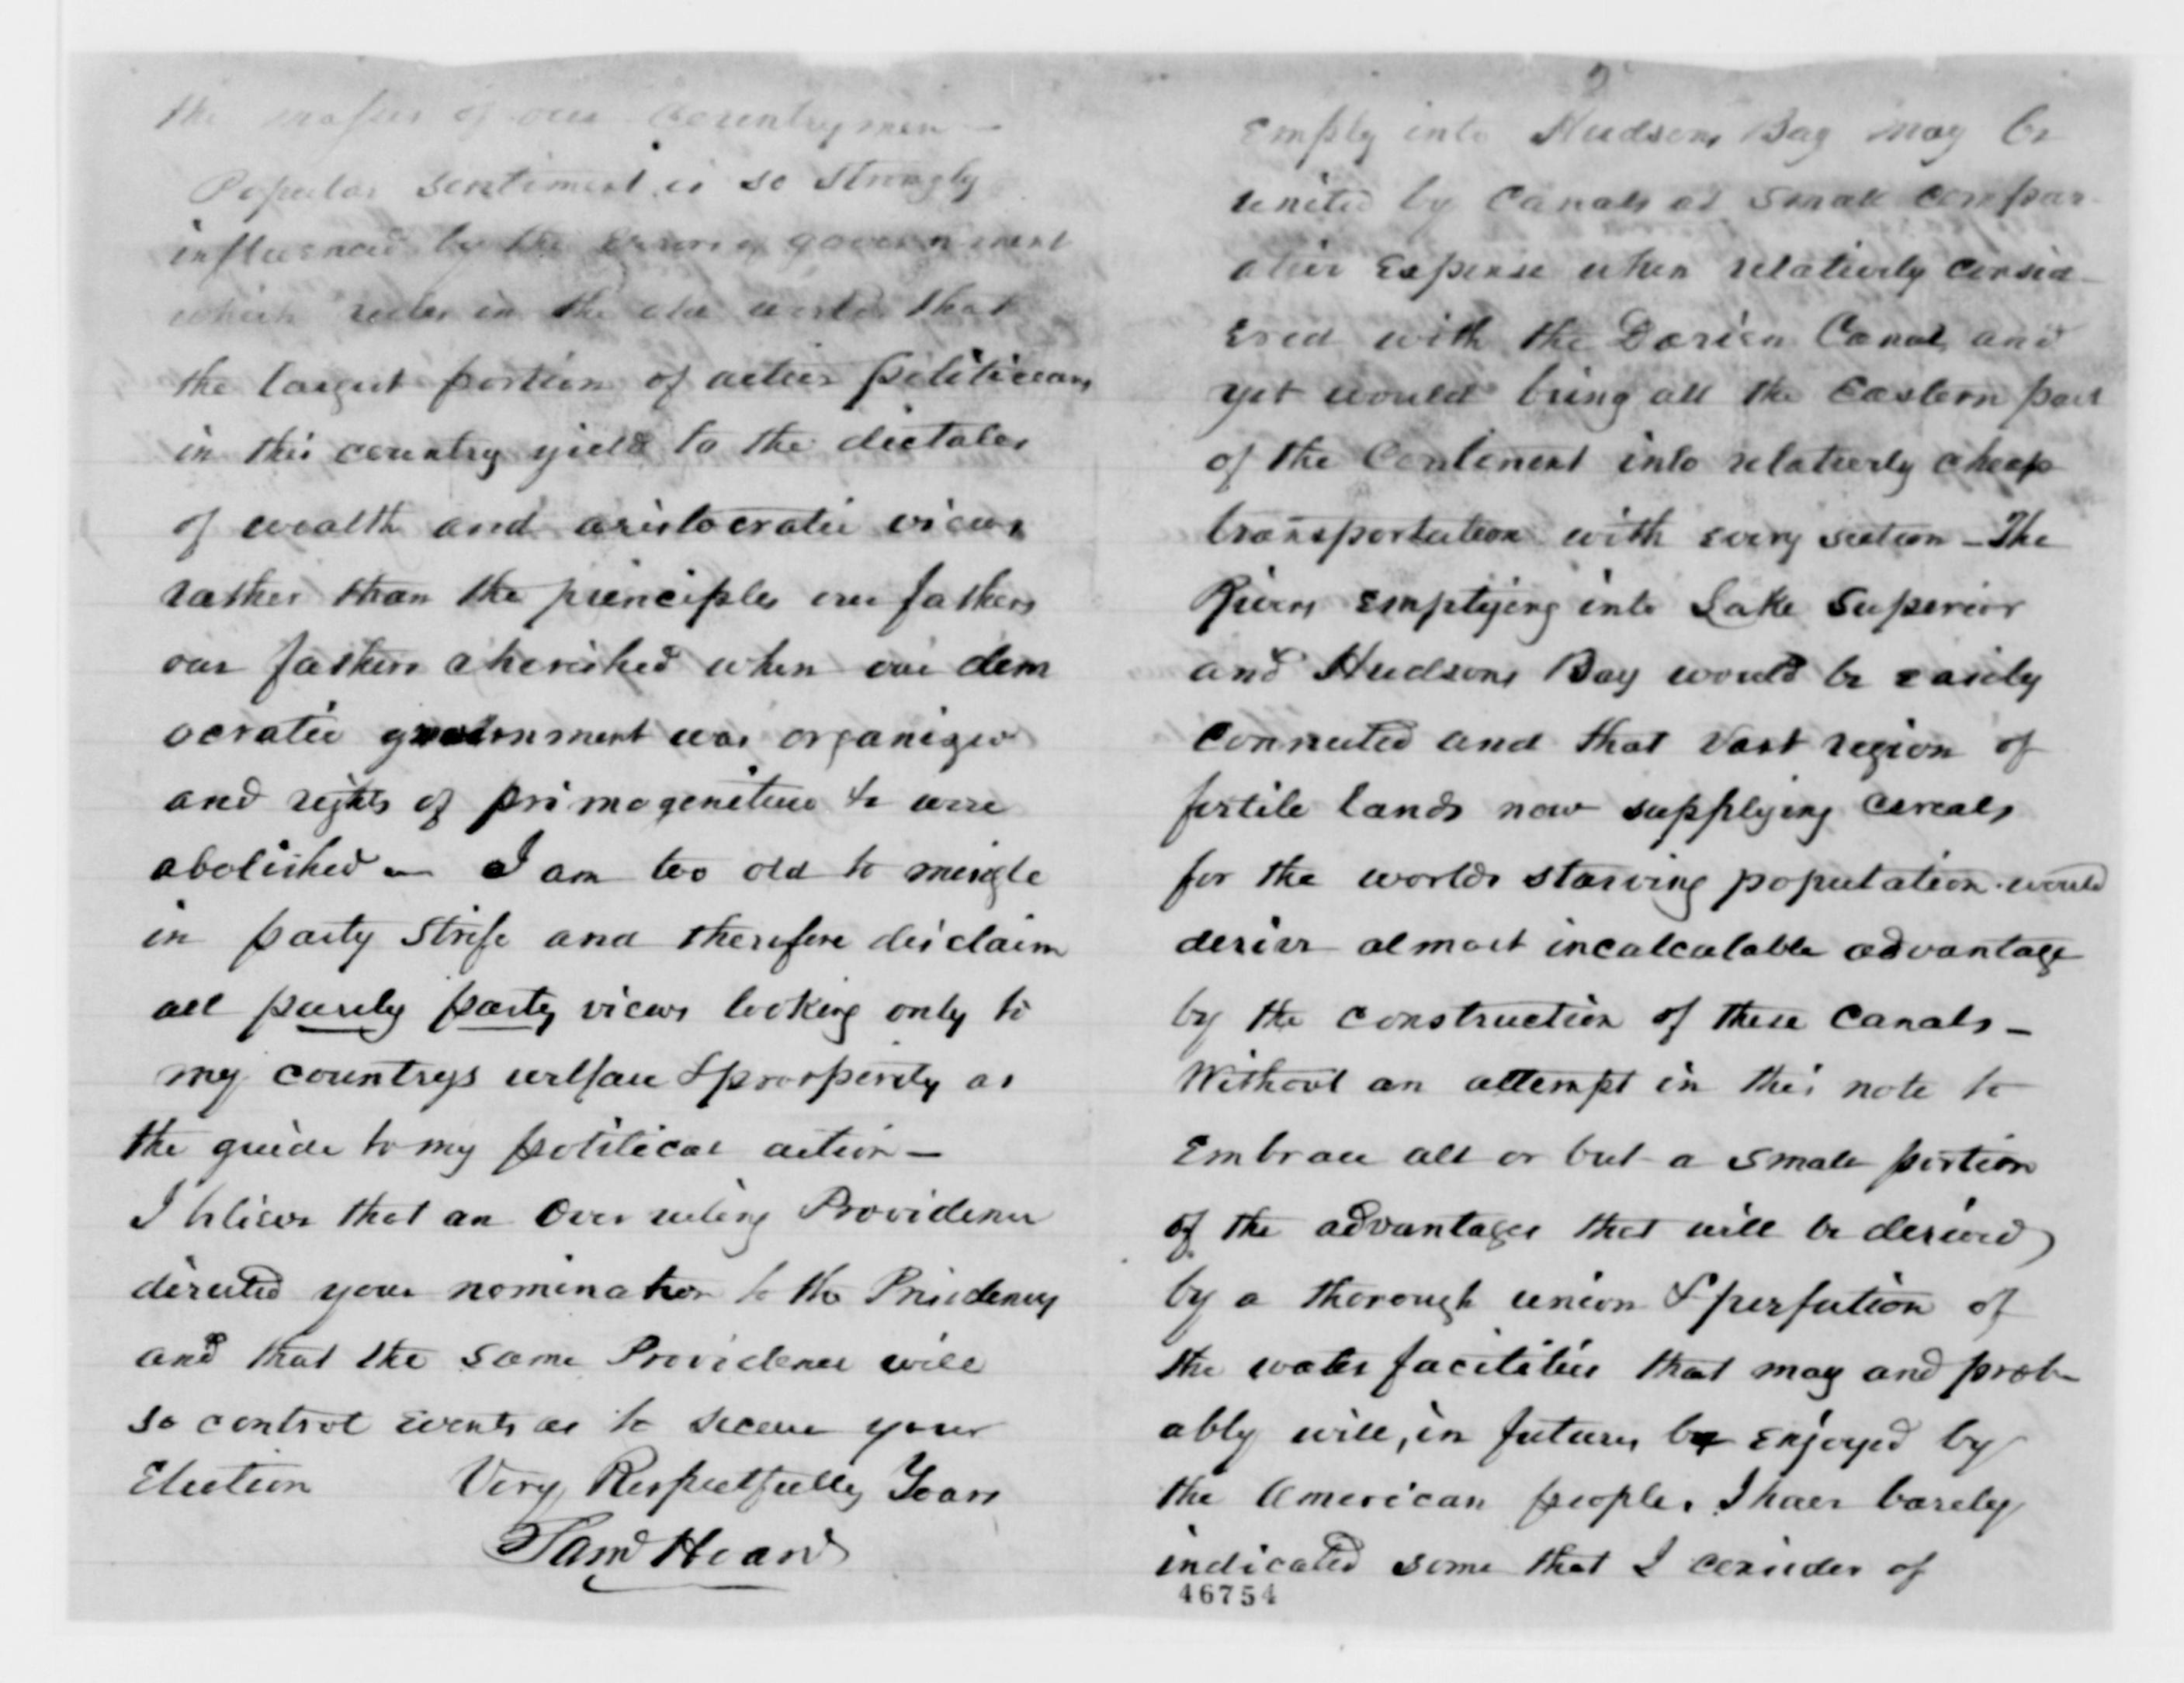 the masses of our Countrymen —
Popular sentiment is so strongly
influenced by the errors of government
which rules in the old world that
the largest portion of active politicians
in this country yield to the dictates
of wealth and aristocratic views
rather than the principles our fathers
our fathers cherished when our dem
ocratic government was organized
and rights of primogeniture &c were
abolished — I am too old to mingle
in party strife and therefore disclaim
all purely party views looking only to
my countrys welfare & prosperity as
the guide to my political action —
I believe that an Over ruling Providence
directed your nomination to the Presidency
and that the same Providence will
so control events as to secure your
Election Very Respectfully Yours
Saml Hoard
2
Empty into Hudsons Bay may be
united by Canals at small compar-
ative Expense when relatively consid-
ered with the Darien Canal, and
yet would bring all the Eastern part
of the Continent into relatively cheap
transportation with every section — The
Rivers Emptying into Lake Superior
and Hudsons Bay would be easily
Connected and that vast region of
fertile lands now supplying cereals
for the worlds starving population would
derive almost incalculable advantage
by the construction of these Canals —
Without an attempt in this note to
Embrace all or but a small portion
of the advantages that will be derived
by a thorough union & perfection of
the water facilities that may and prob-
ably will, in future, be enjoyed by
the American people. I have barely
indicated some that I consider of
46754